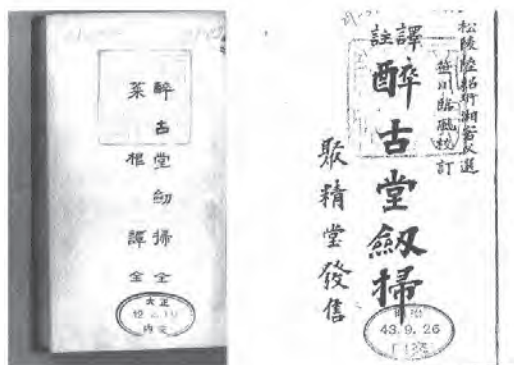 醉古堂劍掃 全
菜根譚 全
大正
12
内交
松陵陸紹珩湘客父選
笹川臨風校訂
譯註
醉古堂劔掃
聚精堂發售
明治
43.9.26